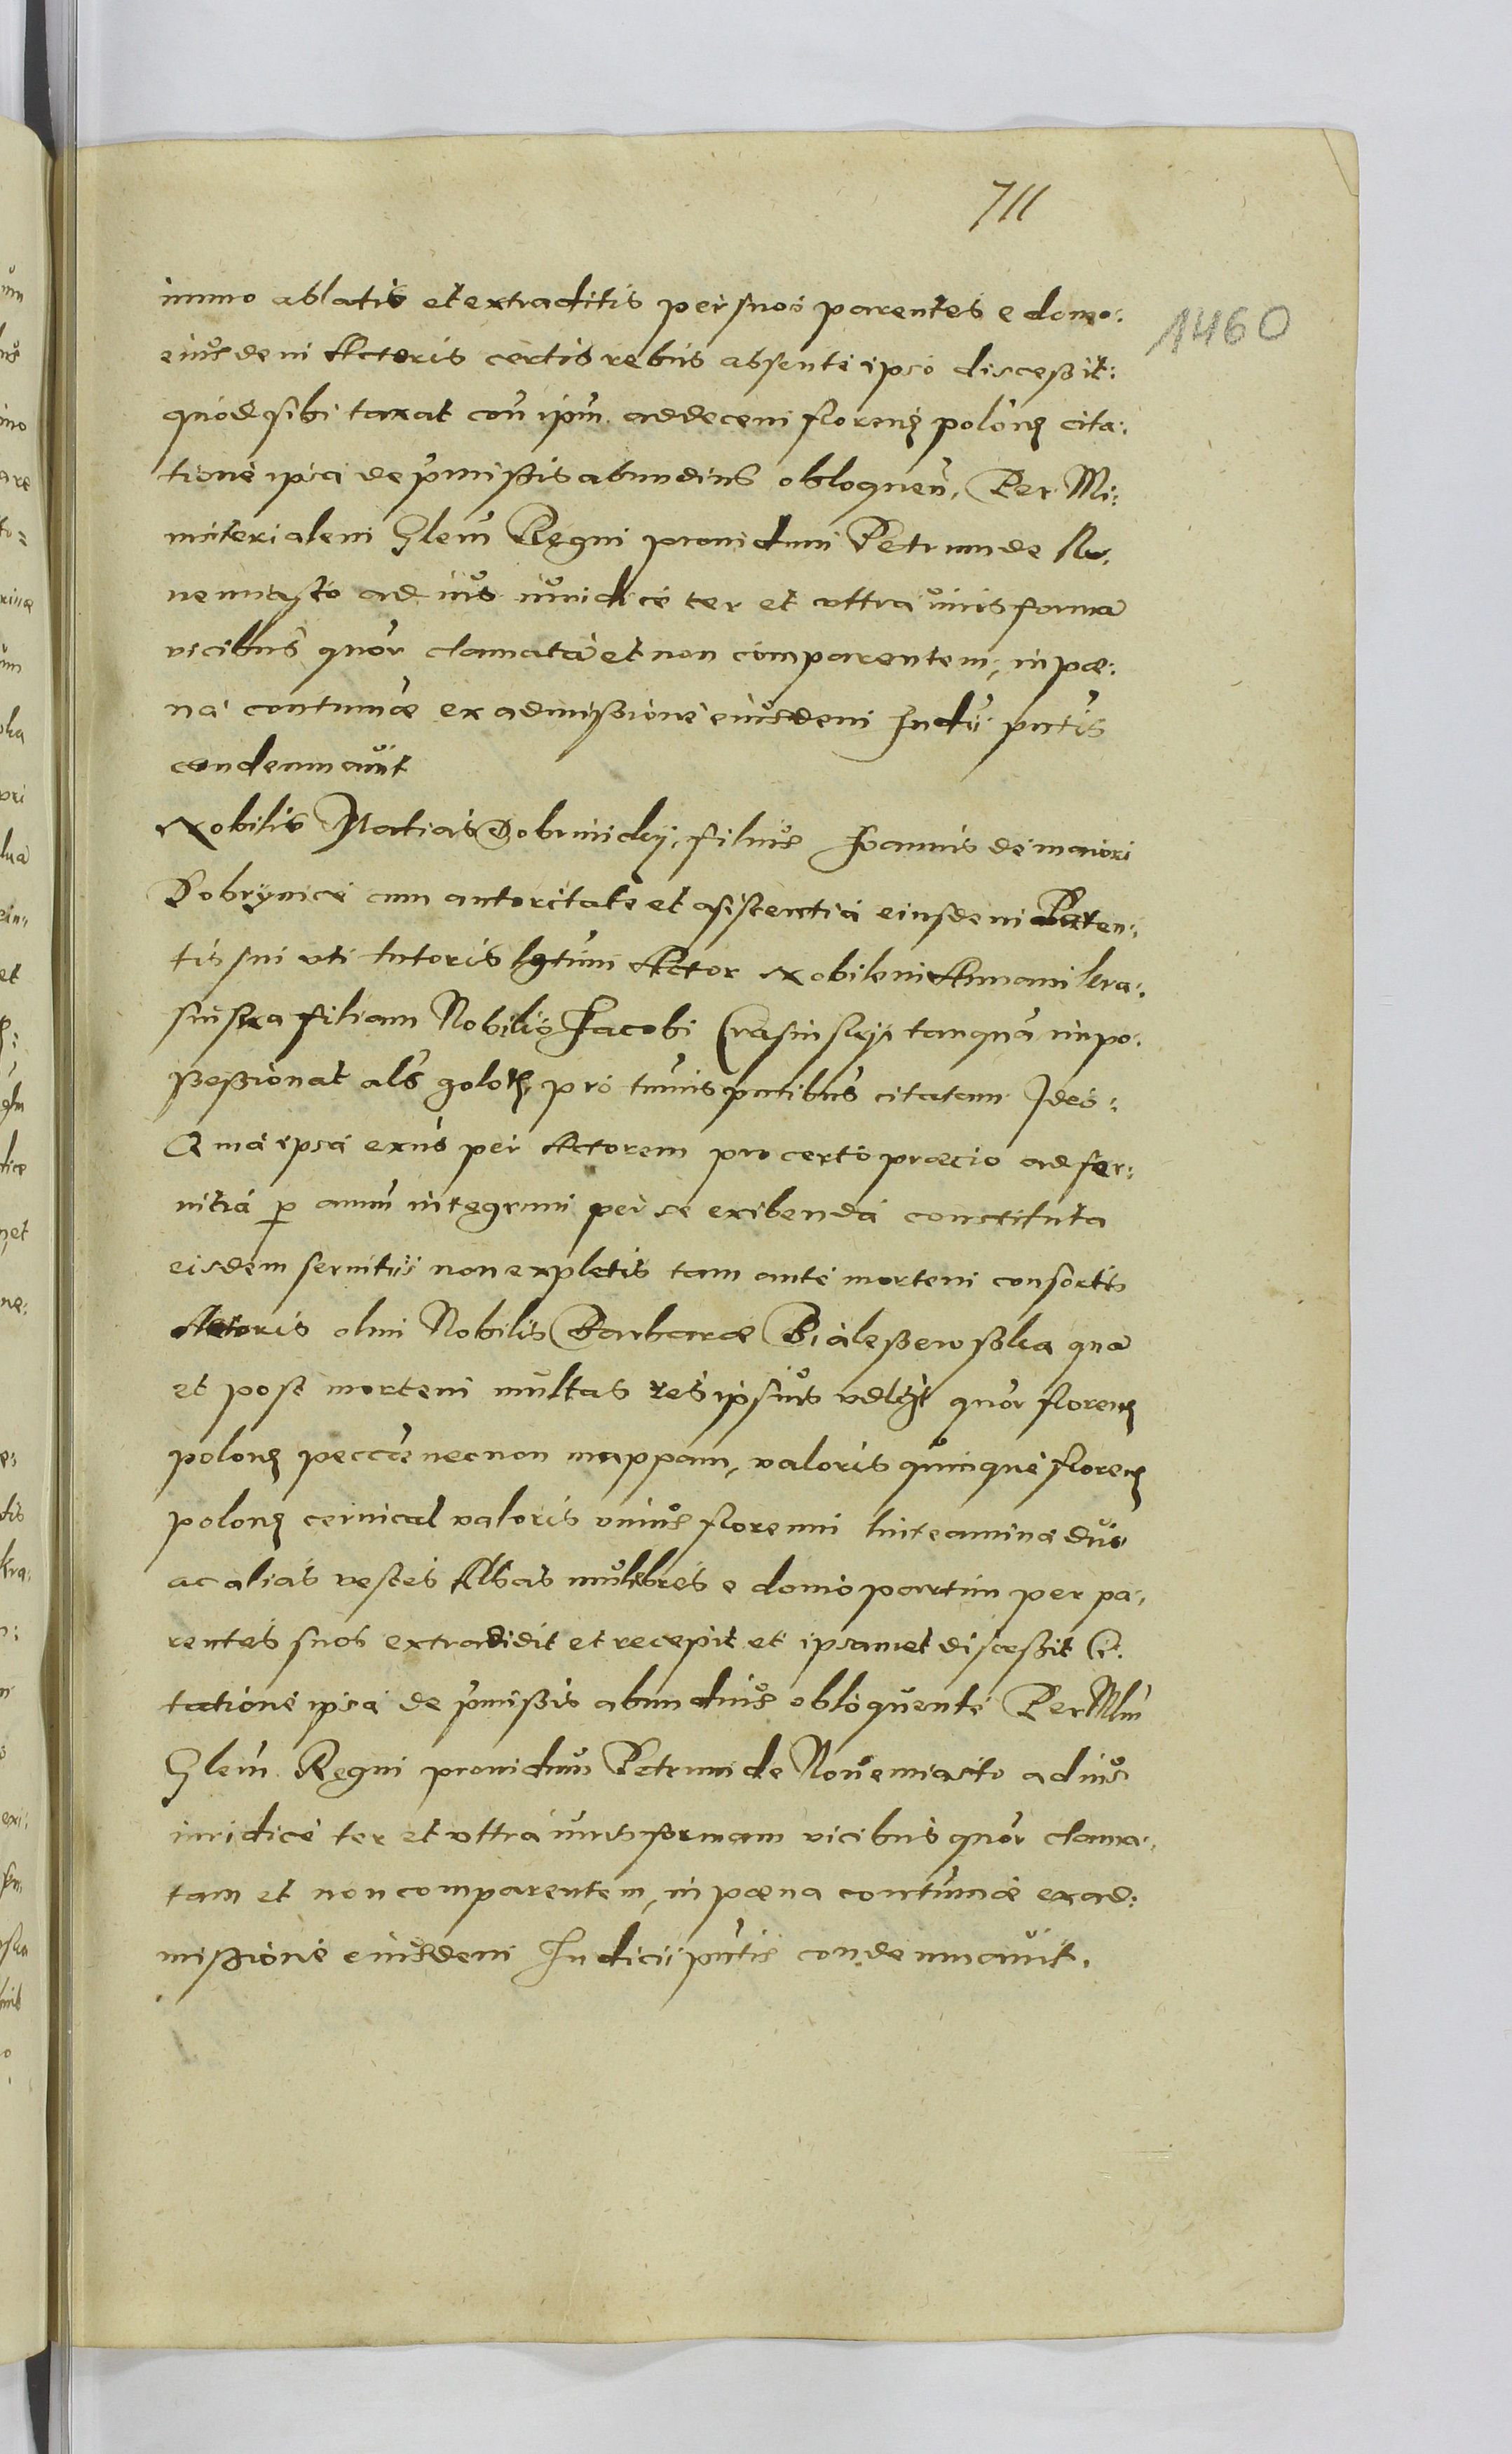 711
1460
immo ablatis et extraditis per suos parentes e domo:
eiusdem Actoris certis rebus absente ipso disceßit:
quod sibi taxat con ipm. ad decem florenos polon cita:
tione ipsa de pmißis abundius obloquen. Per Mi:
nisterialem Glem Regni providum Petrum de No:
vemiasto ad ius iuridice ter et ultra iuris forma
vicibus quor clamata et non comparentem, in pœ:
na contumæ ex admißione eiusdem Iudii pntis
condemnavit
Nobilis Matias Dobrinicky, filius Ioannis de maiori
Dobrynice cum autoritate et asistentia eiusdem Paren:
tis sui uti tutoris lgtimi Actor Nobilem Annam Kra:
sinska filiam Nobilis Jacobi Crasinskyi tanqua impo:
ßeßionat als golotę, pro tmis pntibus citatam Ideo:
Q ma ipsa exns per Actorem pro certo præcio ad ser:
vitia p annu integrum per se exibenda constituta
eisdem servitiis non expletis tam ante mortem consortis
Actoris olim Nobilis Barbaræ Bialeßewßka qua
et post mortem multas res ipsius vdlgt quor floren
polon peccæ necnon mappam, valoris quinque floren
polon cervical valoris unius floreni linteamina duo
ac alias vestes Albas mulibres e domo partim per pa:
rentes suos extradidit et recepit et ipsamet disceßit Ci:
tatione ipsa de pmißis abundius obloquente Per Mlm
Glem Regni providum Petrum de Novemiasto ad ius
iuridice ter et ultra iuris formam vicibus quor clama:
tam et non comparentem, in pœna contumæ ex ad:
mißione eiusdem Iudicii pntis condemnavit.